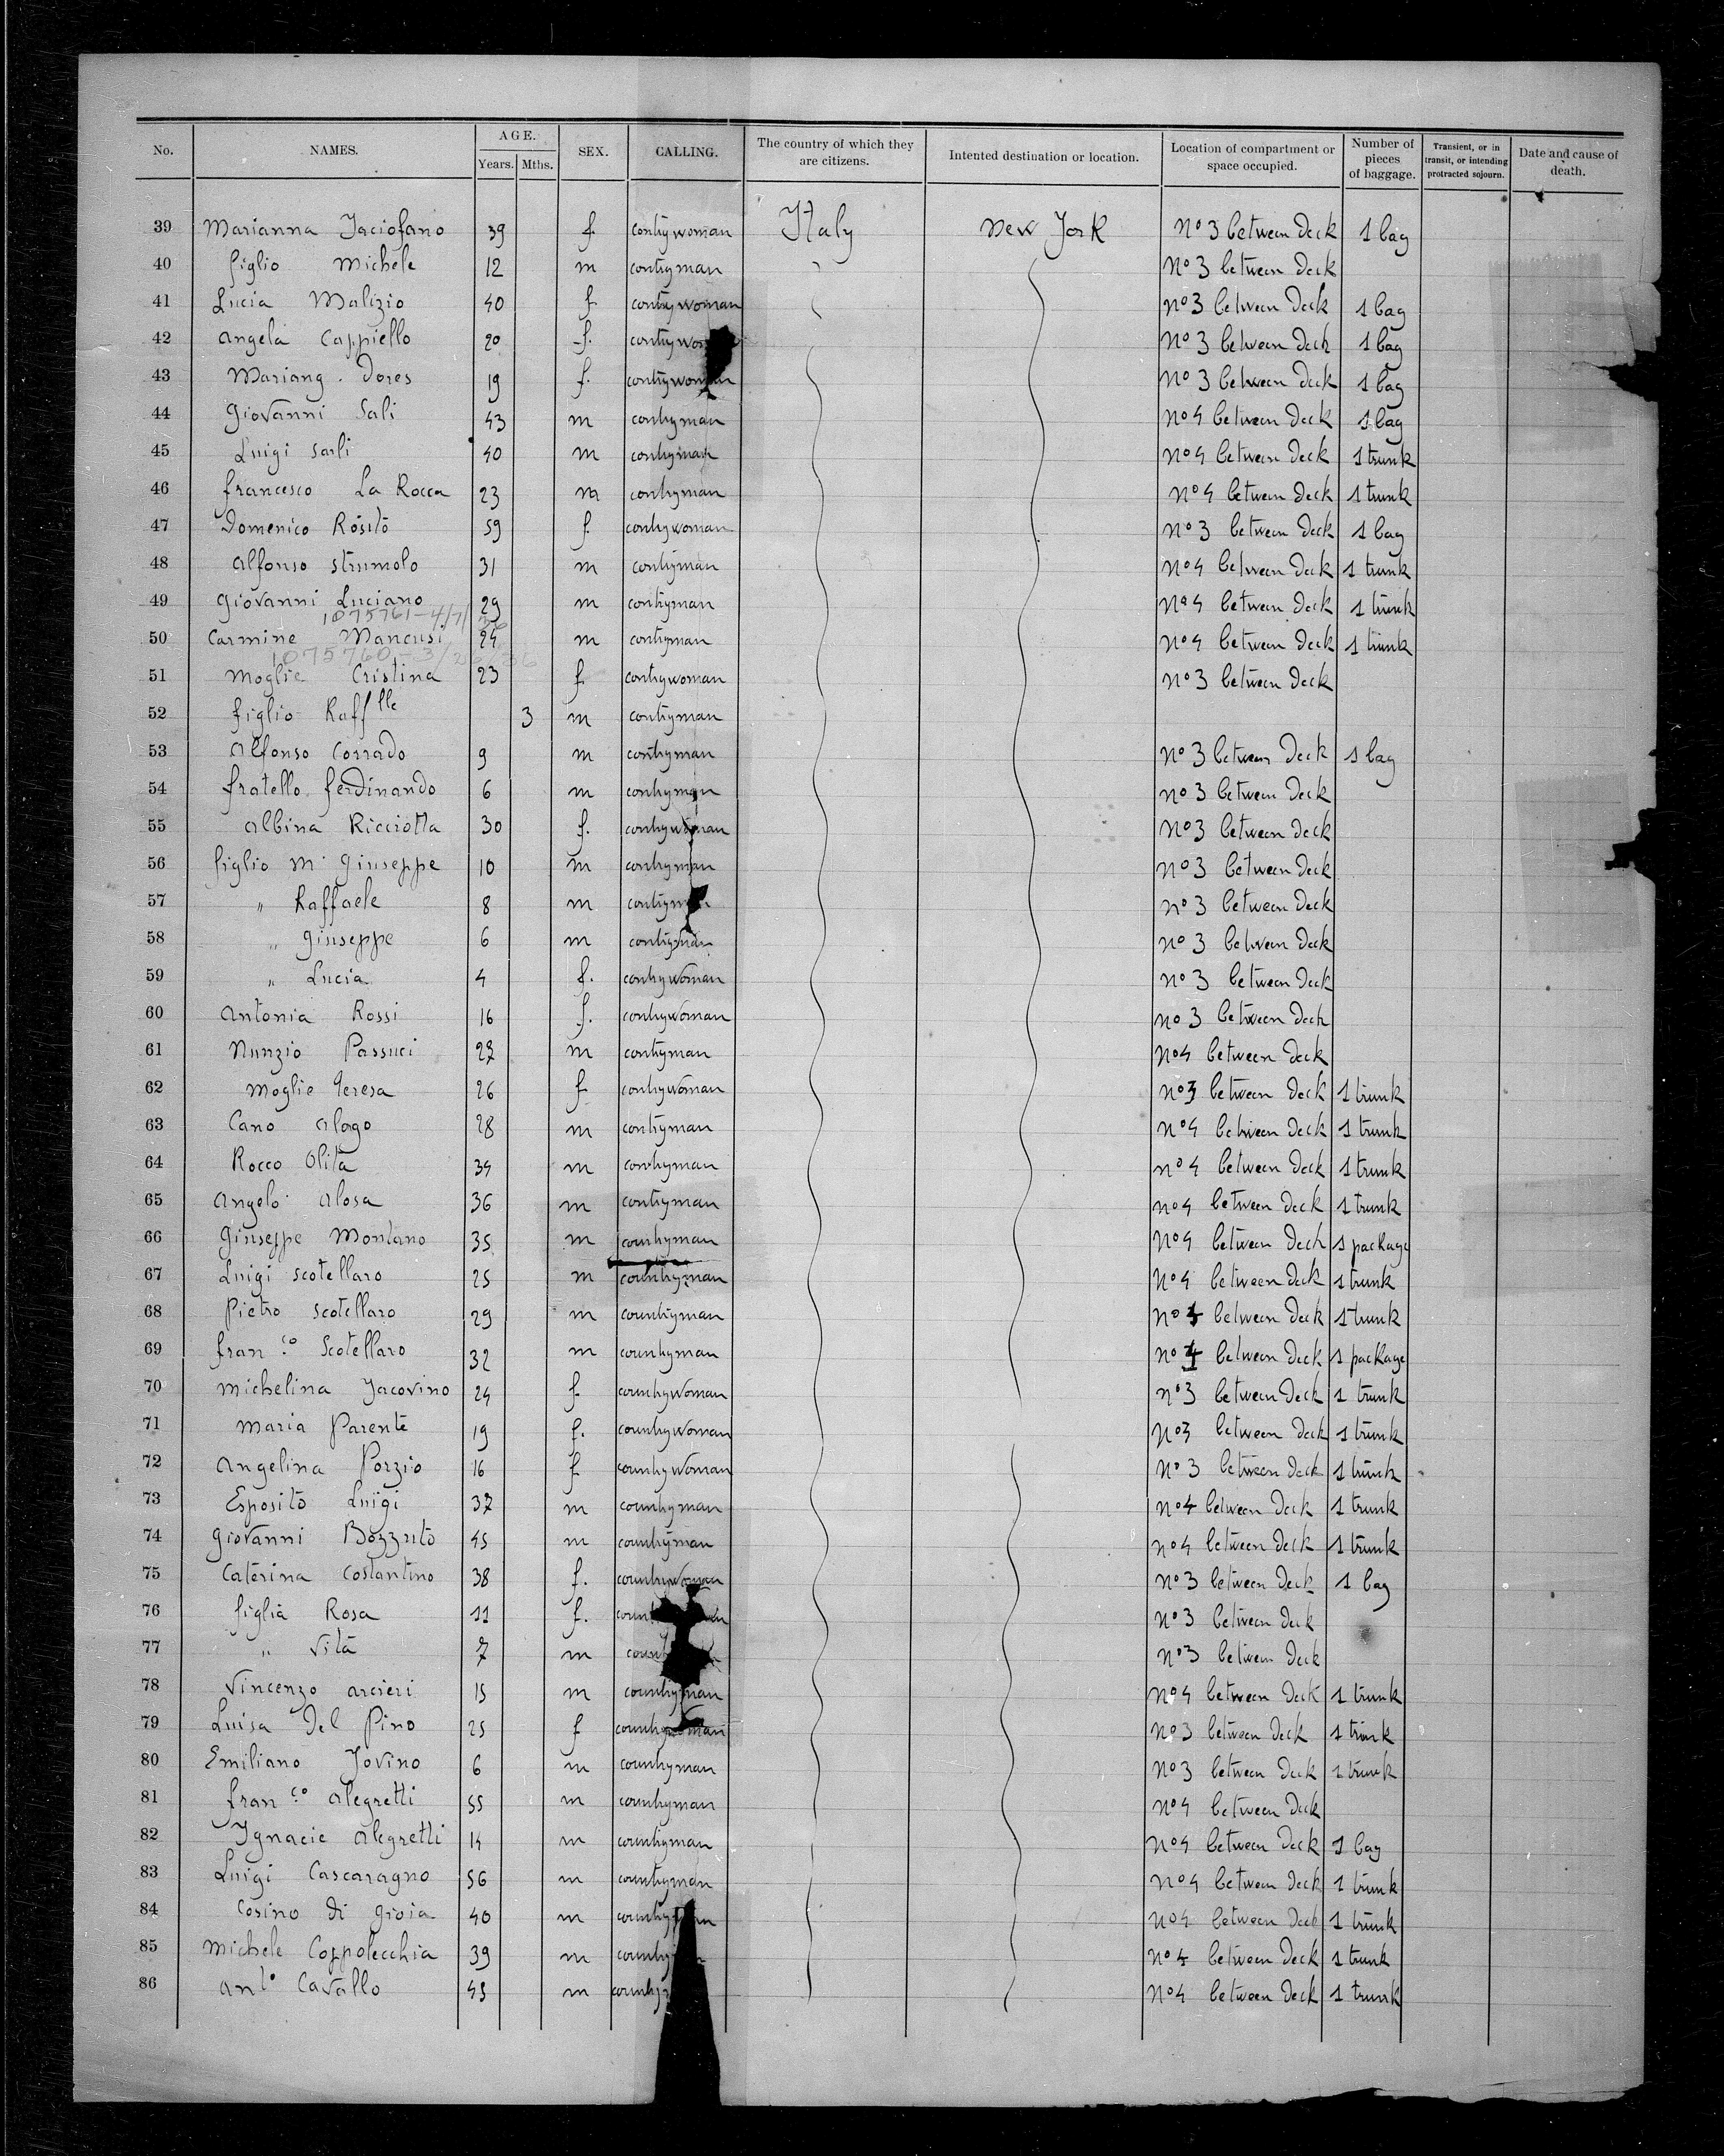 No. NAMES. AGE. Years. Mths. SEX. CALLING. The country of which they are citizens. Intented destination or location. Location of compartment or space occupied. Number of pieces of baggage. Transient, or in transit, or intending protracted sojourn. Date and cause of death.
39 Marianna Jaciofano 39 f. contrywoman Italy New York No 3 between Deck 1 bag
40 figlio Michele 12 m contryman No 3 between Deck
41 Lucia Malizio 40 f. contrywoman No 3 between Deck 1 bag
42 Angela Cappiello 20 f. No 3 between Deck 1 bag
43 Mariang. Dores 19 f. contrywoman No 3 between Deck 1 bag
44 Giovanni Sali 43 m contryman No 4 between Deck 1 bag
45 Luigi Sarli 40 m contryman No 4 between Deck 1 trunk
46 Francesco La Rocca 23 m contryman No 4 between Deck 1 trunk
47 Domenico Rosito 59 f. contrywoman No 3 between Deck 1 bag
48 Alfonso Strumolo 31 m contryman No 4 between Deck 1 trunk
49 Giovanni Luciano 29 m contryman No 4 between Deck 1 trunk
1075761-4/7/36
50 Carmine Mancusi 24 m contryman No 4 between Deck 1 trunk
1075760-3/26/36
51 Moglie Cristina 23 f. contrywoman No 3 between Deck
52 figlio Raff lle 3 m contryman
53 Alfonso Corrado 9 m contryman No 3 between Deck 1 bag
54 fratello Ferdinando 6 m contryman No 3 between Deck
55 Albina Ricciotta 30 f. contrywoman No 3 between Deck
56 figlio M. Giuseppe 10 m contryman No 3 between Deck
57 " Raffaele 8 m contryman No 3 between Deck
58 " Giuseppe 6 m contryman No 3 between Deck
59 " Lucia 4 f. contrywoman No 3 between Deck
60 Antonia Rossi 16 f. contrywoman No 3 between Deck
61 Nunzio Passuci 27 m contryman No 4 between Deck
62 Moglie Teresa 26 f. contrywoman No 3 between Deck 1 trunk
63 Cano Alogo 28 m contryman No 4 between Deck 1 trunk
64 Rocco Olita 34 m contryman No 4 between Deck 1 trunk
65 Angelo Alosa 36 m contryman No 4 between Deck 1 trunk
66 Giuseppe Montano 35 m countryman No 4 between Deck 1 package
67 Luigi Scotellaro 25 m countryman No 4 between Deck 1 trunk
68 Pietro Scotellaro 29 m countryman No 4 between Deck 1 trunk
69 Fran.co Scotellaro 32 m countryman No 4 between Deck 1 package
70 Michelina Jacovino 24 f. countrywoman No 3 between Deck 1 trunk
71 Maria Parente 19 f. countrywoman No 3 between Deck 1 trunk
72 Angelina Porzio 16 f. countrywoman No 3 between Deck 1 trunk
73 Esposito Luigi 37 m countryman No 4 between Deck 1 trunk
74 Giovanni Bozzuto 45 m countryman No 4 between Deck 1 trunk
75 Caterina Costantino 38 f. countrywoman No 3 between Deck 1 bag
76 figlia Rosa 11 f. No 3 between Deck
77 " Vita 7 m No 3 between Deck
78 Vincenzo Arcieri 15 m countryman No 4 between Deck 1 trunk
79 Luisa Del Pino 25 f countrywoman No 3 between Deck 1 trunk
80 Emiliano Jovino 6 m countryman No 3 between Deck 1 trunk
81 Fran.co Alegretti 55 m countryman No 4 between Deck
82 Ignacie Alegretti 14 m countryman No 4 between Deck 1 bag
83 Luigi Cascaragno 56 m countryman No 4 between Deck 1 trunk
84 Cosino Di Gioia 40 m countryman No 4 between Deck 1 trunk
85 Michele Coppolecchia 39 m No 4 between Deck 1 trunk
86 Anto Cavallo 45 m No 4 between Deck 1 trunk